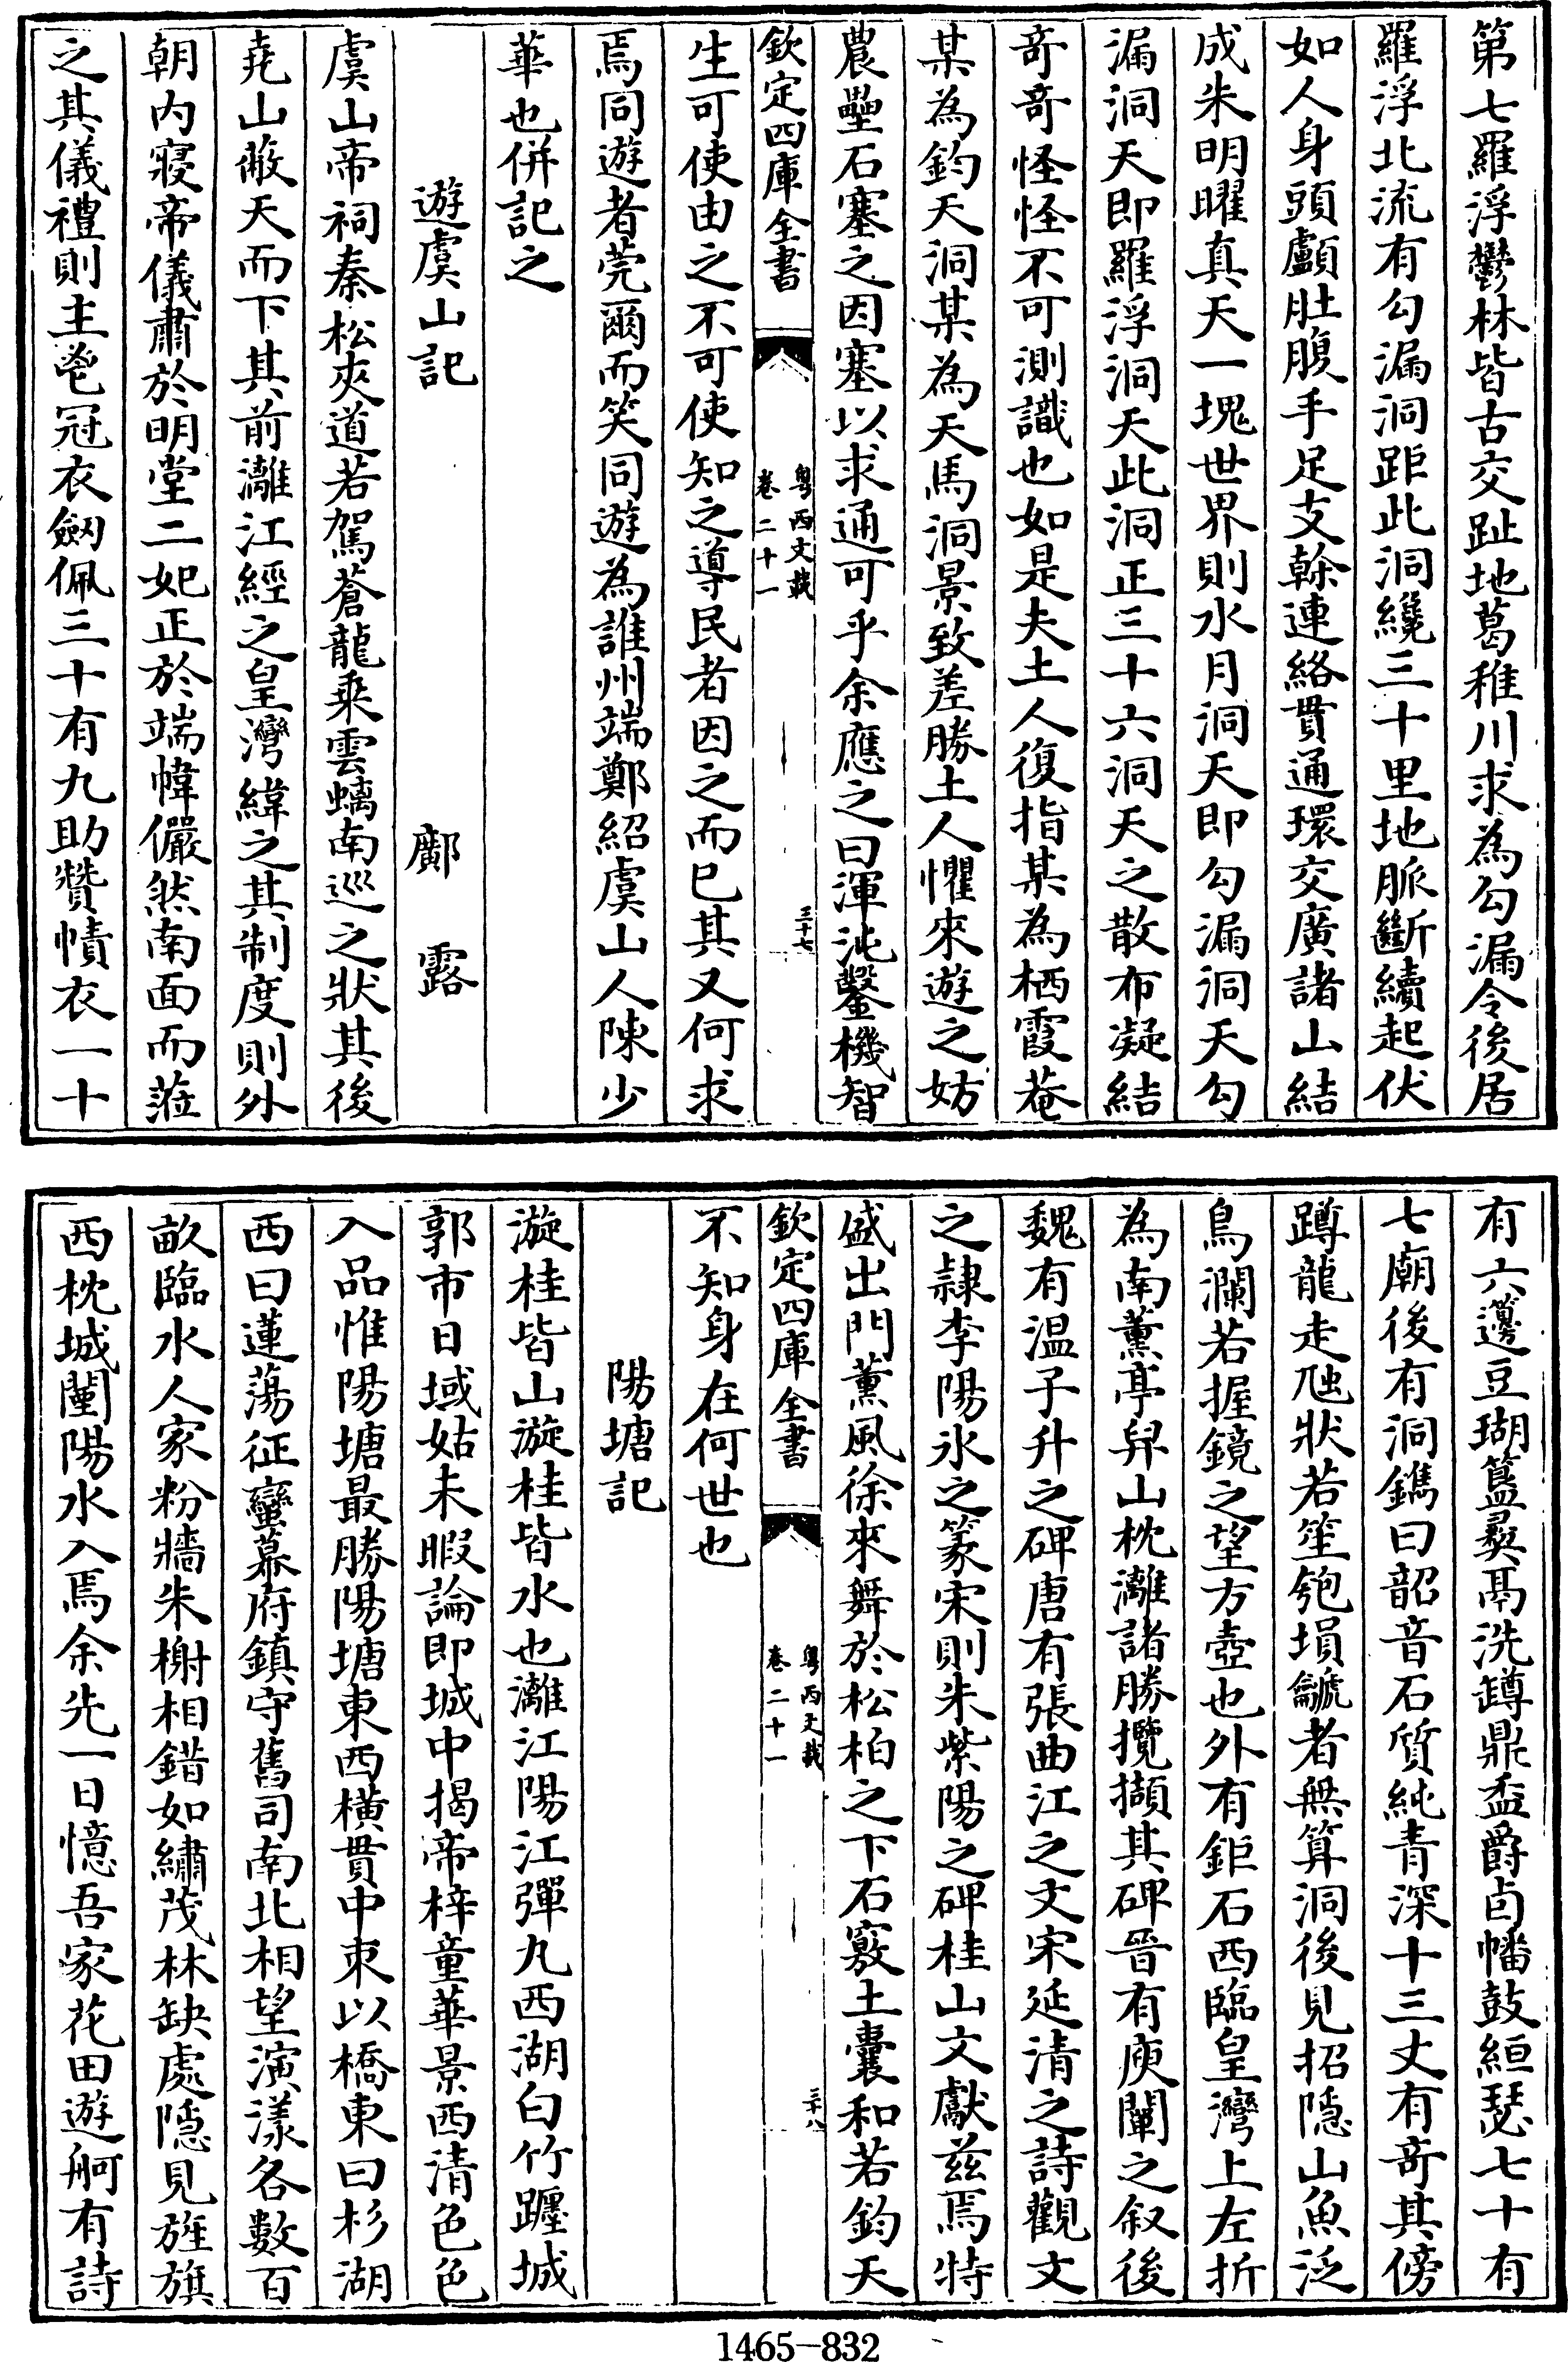 第七羅浮鬱林皆古交趾地葛稚川求為勾漏令後居
羅浮北流有勾漏洞距此洞纔三十里地脈斷續起伏
如人身頭顱肚腹手足支榦連絡貫通環交廣諸山結
成朱明曜真天一塊世界則水月洞天即勾漏洞天勾
漏洞天即羅浮洞天此洞正三十六洞天之散布凝結
奇奇怪怪不可測識也如是夫土人復指某為栖霞菴
某為鈞天洞某為天馬洞景致差勝土人懼來遊之妨
農壘石塞之因塞以求通可乎余應之曰渾沌鑿機智
欽定四庫全書
粤西文載
卷二十一
三十七
生可使由之不可使知之導民者因之而已其又何求
焉同遊者莞爾而笑同遊為誰州端鄭紹虞山人陳少
華也併記之
遊虞山記
鄺露
虞山帝祠秦松夾道若駕蒼龍乘雲螭南巡之狀其後
堯山蔽天而下其前灕江經之皇灣緯之其制度則外
朝內寢帝儀肅於明堂二妃正於端幃儼然南面而蒞
之其儀禮則主鬯冠衣劒佩三十有九助贊幘衣一十
有六籩豆瑚簋彛鬲洗罇鼎盃爵卣幡鼓絙瑟七十有
七廟後有洞鐫曰韶音石質純青深十三丈有奇其傍
蹲龍走虺狀若笙匏塤龥者無算洞後見招隱山魚泛
鳥瀾若握鏡之望方壺也外有鉅石西臨皇灣上左折
為南薰亭舁山枕灕諸勝攬擷其碑晉有庾闡之叙後
魏有溫子升之碑唐有張曲江之文宋延清之詩觀文
之隷李陽氷之篆宋則朱紫陽之碑桂山文獻兹焉特
盛出門薰風徐來舞於松柏之下石竅土囊和若鈞天
欽定四庫全書
粤西文載
卷二十一
三十八
不知身在何世也
陽塘記
漩桂皆山漩桂皆水也灕江陽江彈丸西湖白竹躔城
郭市日域姑未暇論即城中揭帝梓童華景西清色色
入品惟陽塘最勝陽塘東西橫貫中束以橋東曰杉湖
西曰蓮蕩征蠻幕府鎮守舊司南北相望演漾各數百
畝臨水人家粉牆朱榭相錯如繡茂林缺處隱見旌旗
西枕城闉陽水入焉余先一日憶吾家花田遊舸有詩
1465-832